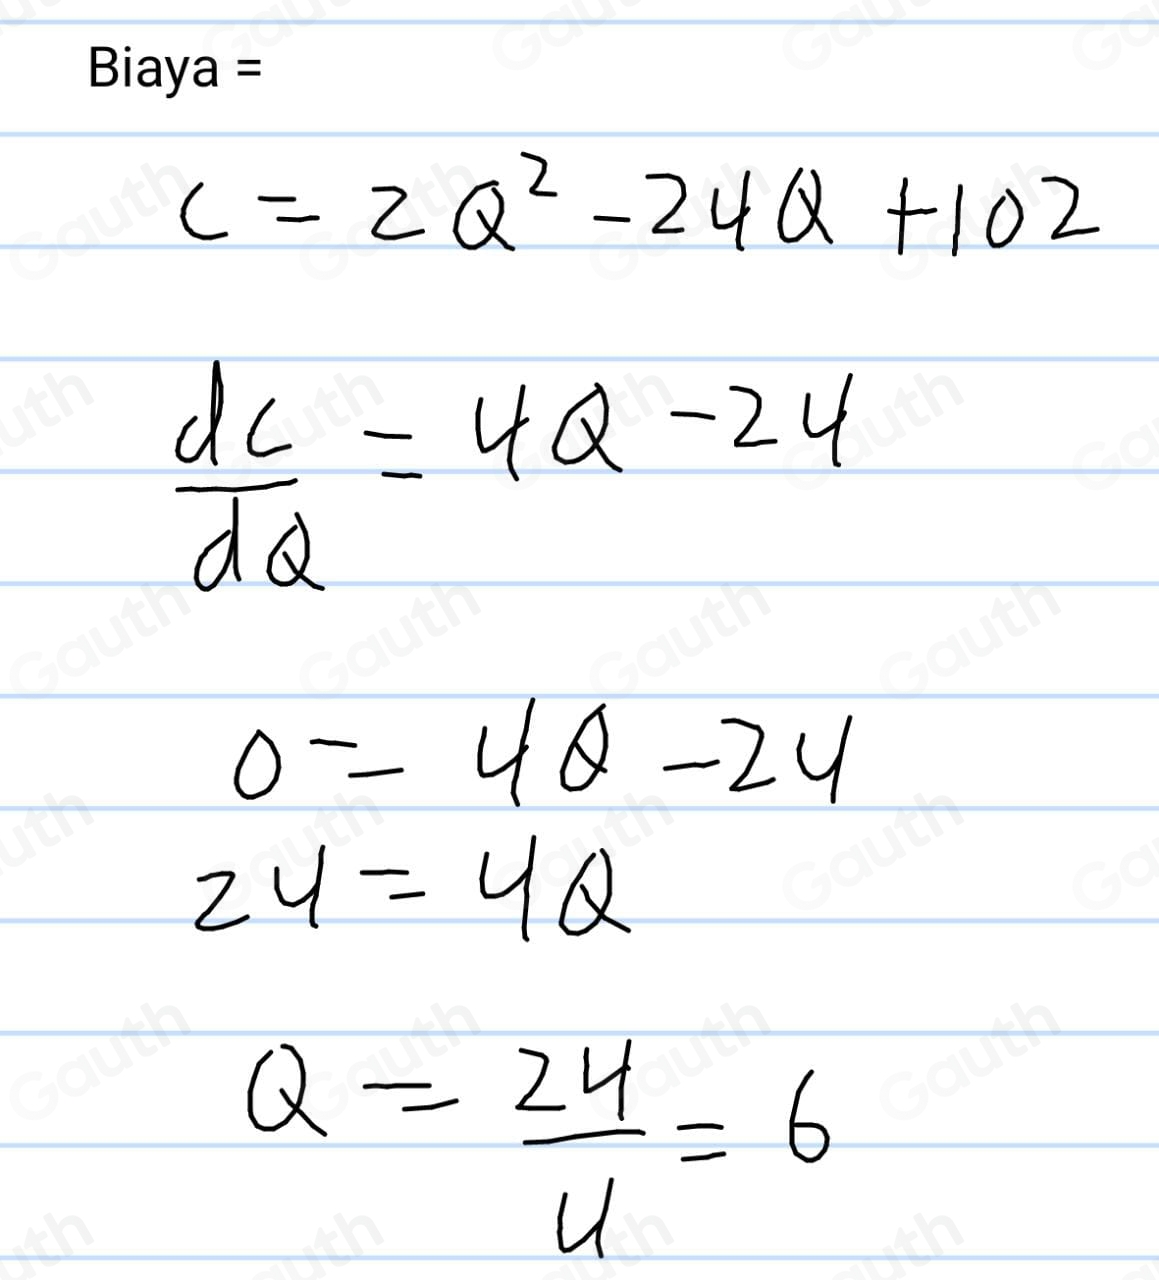 Biaya =
C = 2Q² - 24Q + 102
dC/dQ = 4Q - 24
0 = 4Q - 24
24 = 4Q
Q = 24/4 = 6